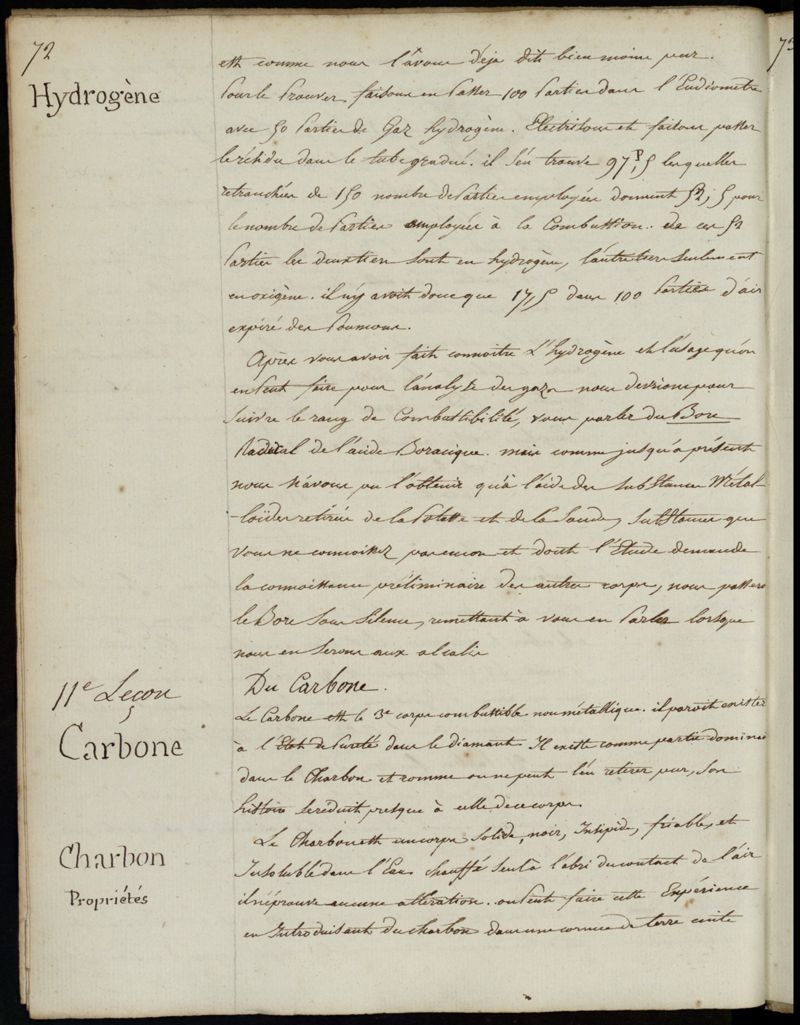 72
Hydrogène
est comme nous l'avons déja dit bien moins pur.
Pour le Prouver faisons en Passer 100 Parties dans l'Eudiometre
avec 50 Parties de Gaz hydrogène. Electrisons et faisons passer
le résidu dans le tube gradué. il s'en trouve 97P,5 lesquelles
retranchées de 150 nombre de Parties employées donnent 52,5 pour
le nombre de Parties employées à la Combustion. de ces 52
Parties les deux tiers sont en hydrogène, l'autre tiers seulement
en oxigène. il n'y avoit donc que 17,5 dans 100 Parties d'air
expiré des Poumons.
Après vous avoir fait connoitre L'hydrogène et l'usage qu'on
en Peut faire pour l'analyse des gaz nous devrions pour
suivre le rang de Combustibilité, vous parler du Bore
Radical de l'acide Boracique. mais comme jusqu'à présent
nous n'avons pu l'obtenir qu'à l'aide des substances Métal-
-loïdes retirées de la Potasse et de la Soude, substances que
vous ne connoissez pas encore et dont l'Etude demande
la connoissance préliminaire des autres corps, nous passerons
le Bore Sous Silence, remettant à vous en Parler lorsque
nous en serons aux alcalis
11e Leçon
Du Carbone.
Carbone
Le Carbone est le 3e corps combustible non métallique. il paroit exister
à l'Etat de Pureté dans le diamant. Il existe comme partie
dans le Charbon et comme on ne peut l'en retirer pur, son
histoire se reduit presque à celle de ce corps.
Charbon
Propriétés
Le Charbon est un corps solide, noir, Insipide, friable, et
Insoluble dans l'Eau chauffé seul à l'abri du contact de l'air
il n'éprouve aucune altération. on Peut faire cette Expérience
en Introduisant du charbon dans une cornue de terre cuite
7